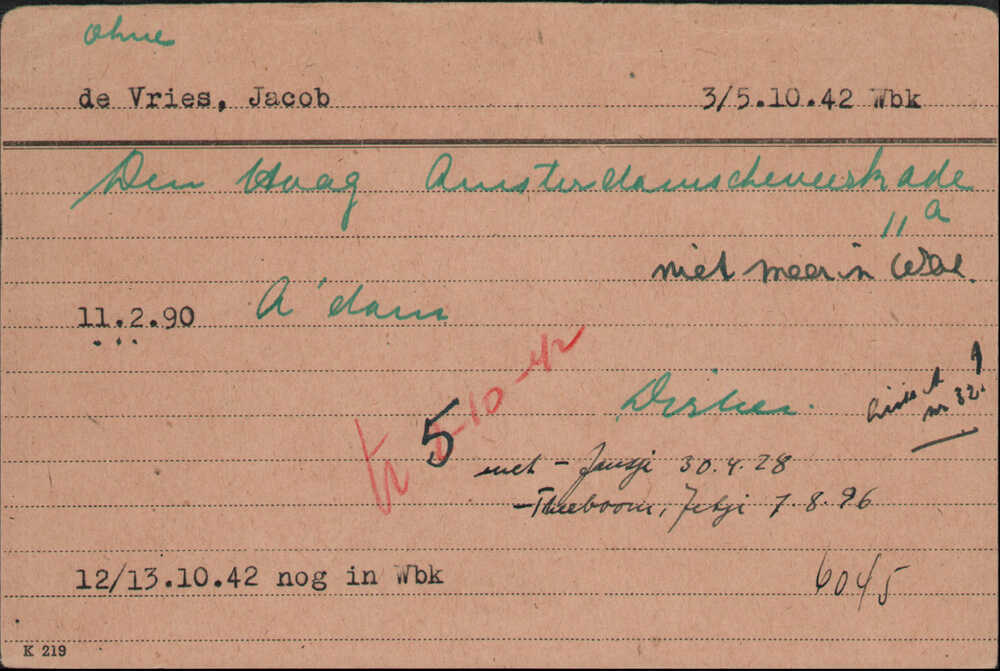 ohne
de Vries, Jacob 3/5.10.42 Wbk
Den Haag Amsterdamscheveerkade
11 a
niet meer in Wbk.
11.2.90 A'dam
5-10-42
tr 5
nr 32
met - Jansje 30.4.28
- Theeboom, Jetje 7.8.96
12/13.10.42 nog in Wbk 6045
K 219